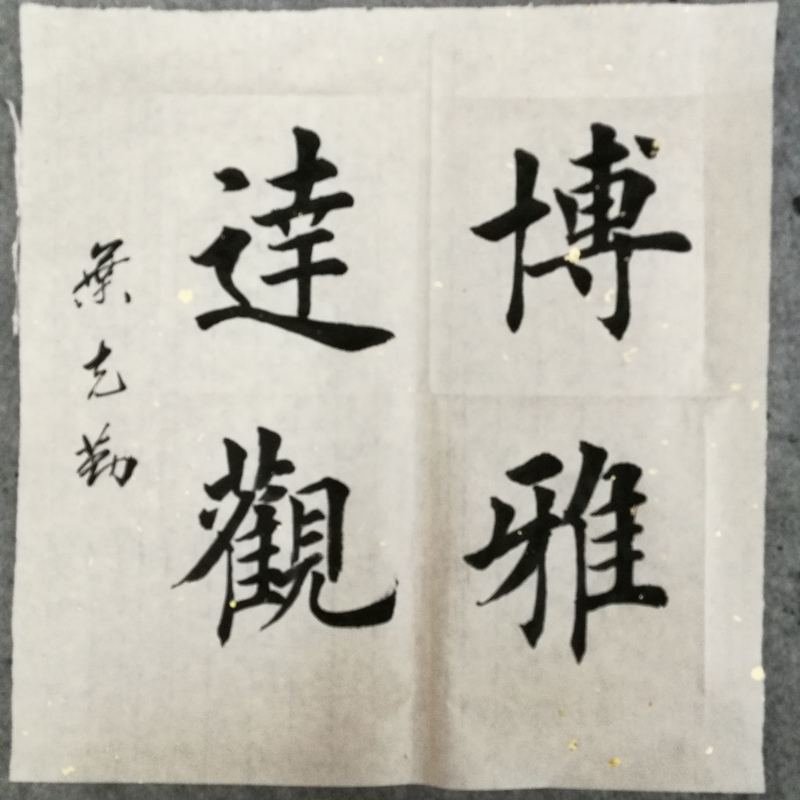 博雅
達觀
葉克勤